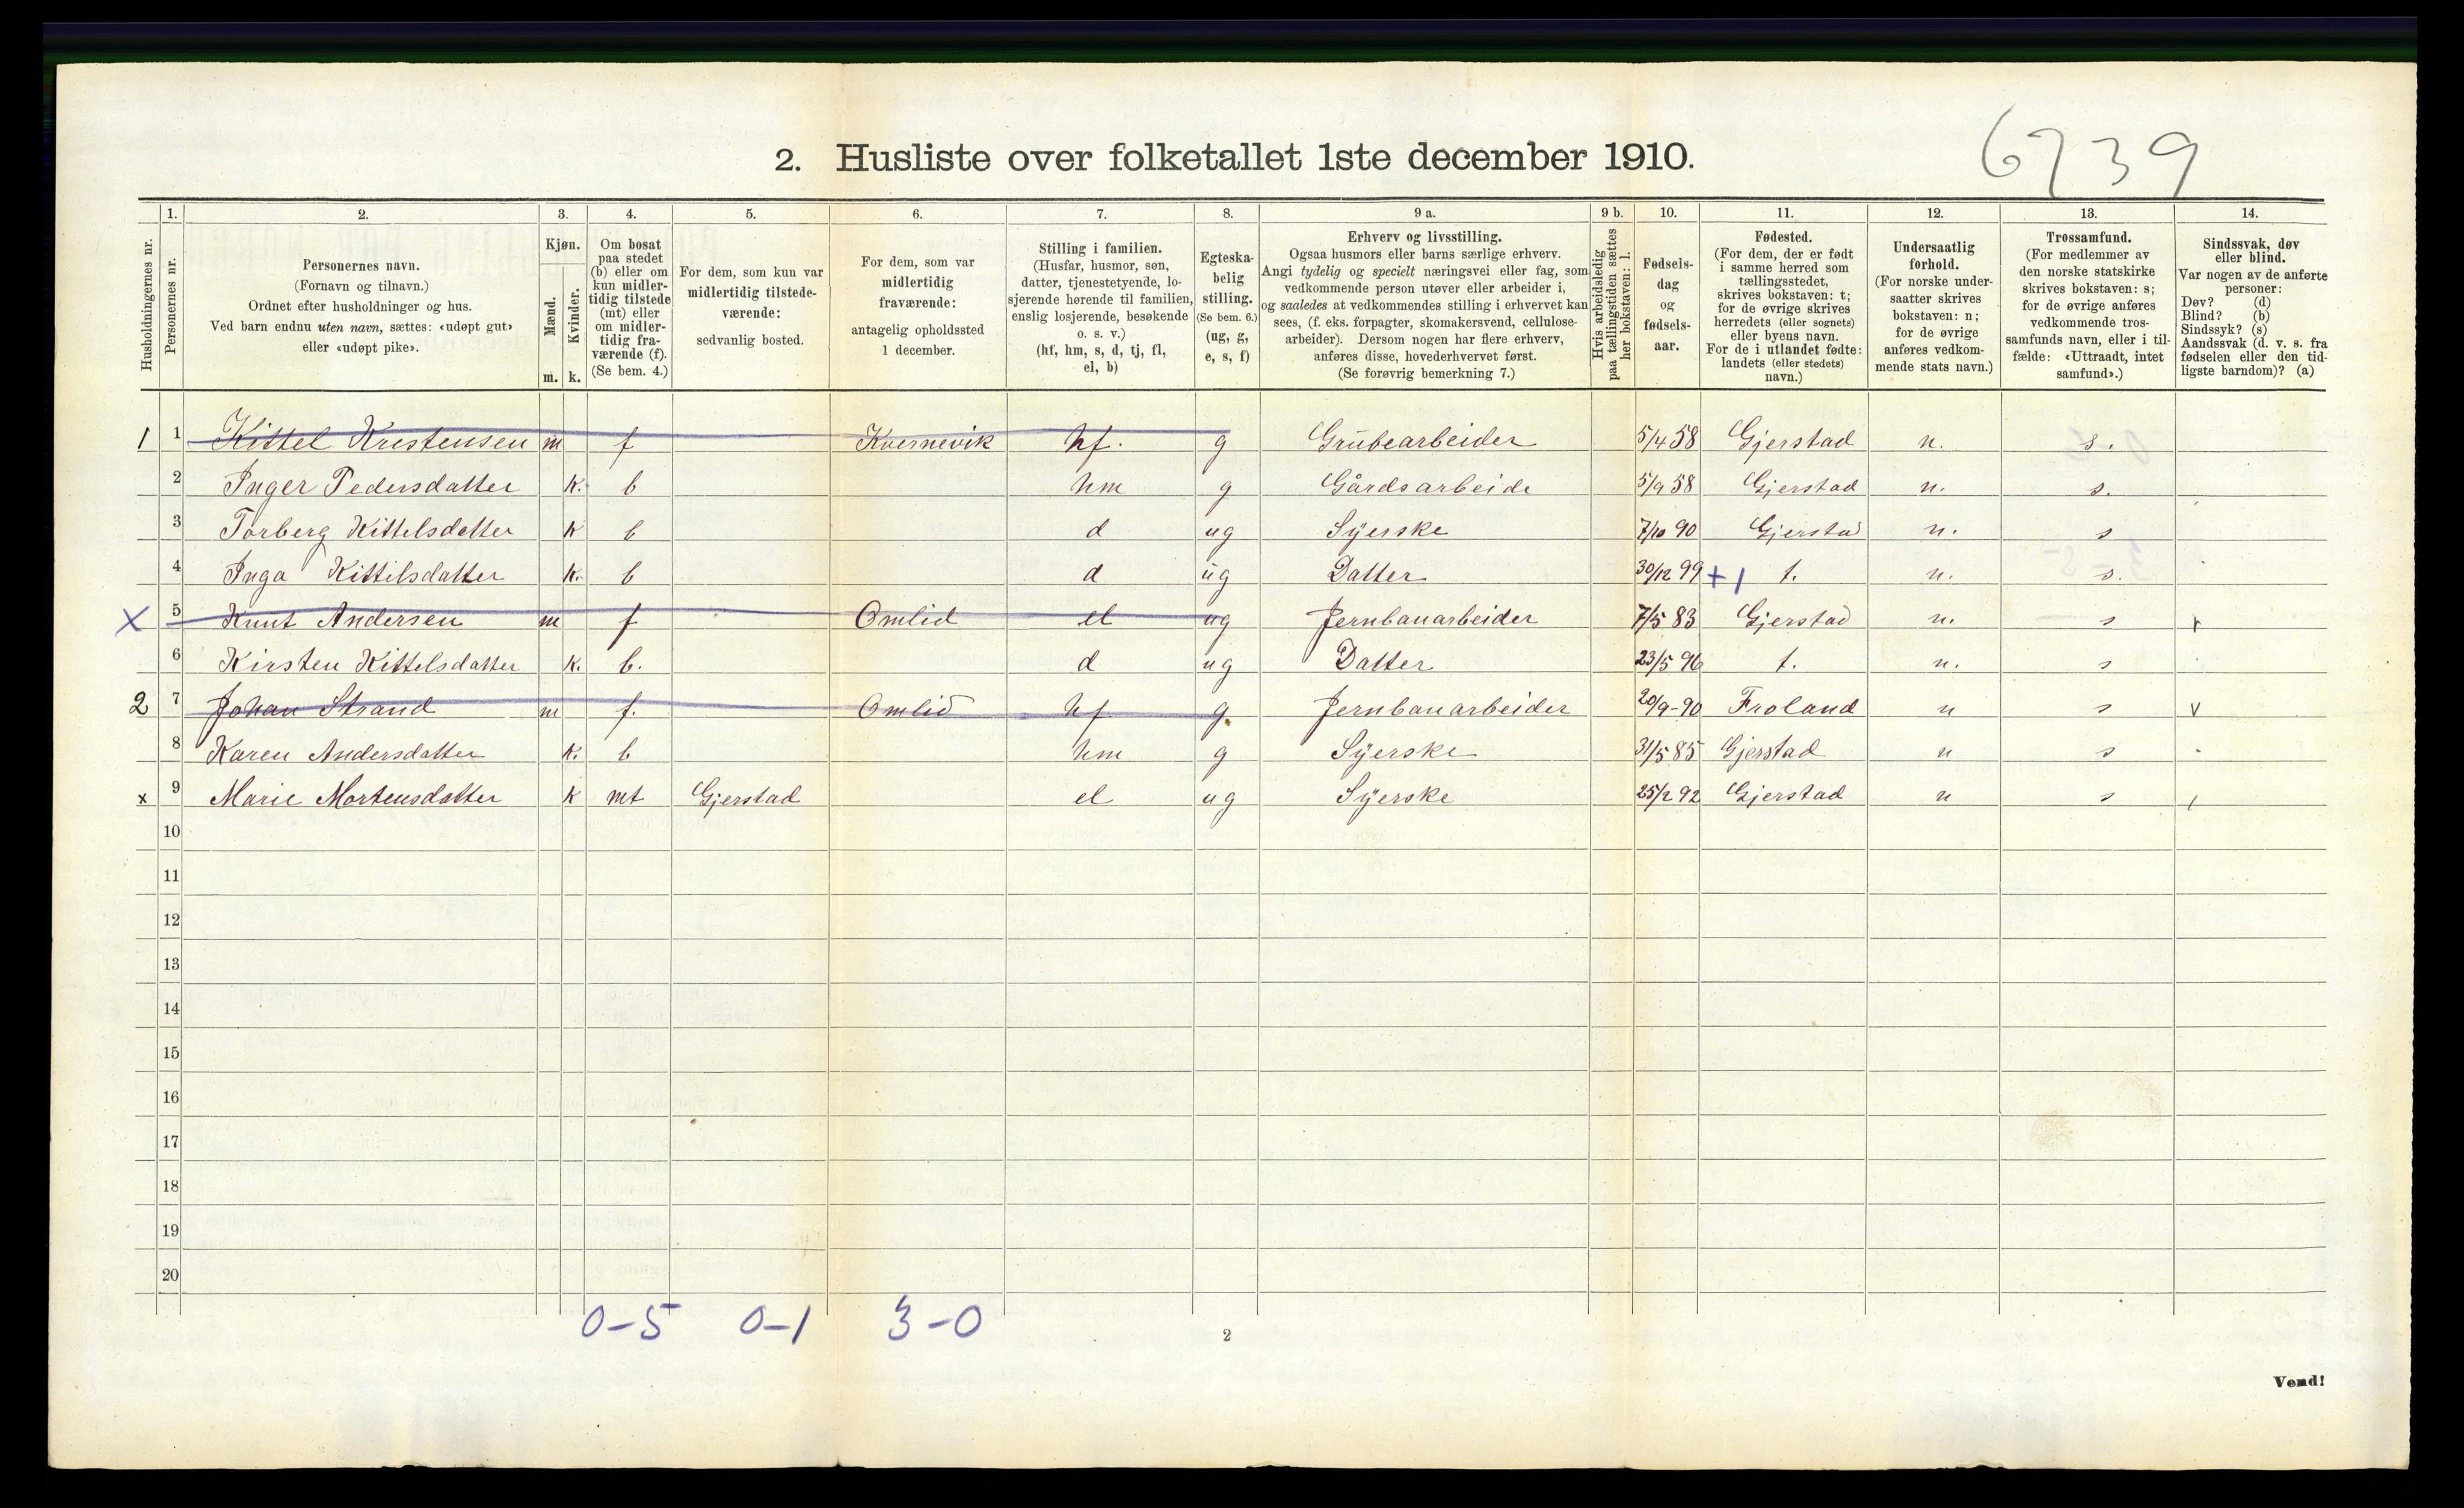 6739
2. Husliste over folketallet 1ste december 1910.
1. 2. 3. 4. 5. 6. 7. 8. 9 a. 9 b. 10. 11. 12. 13. 14.
Husholdningernes nr.
Personernes nr.
Personernes navn.
(Fornavn og tilnavn.)
Ordnet efter husholdninger og hus.
Ved barn endnu uten navn, sættes: «udøpt gut»
eller «udøpt pike».
Kjøn.
Mænd.
Kvinder.
m. k.
Om bosat
paa stedet
(b) eller om
kun midler-
tidig tilstede
(mt) eller
om midler-
tidig fra-
værende (f).
(Se bem. 4.)
For dem, som kun var
midlertidig tilstede-
værende:
sedvanlig bosted.
For dem, som var
midlertidig
fraværende:
antagelig opholdssted
1 december.
Stilling i familien.
(Husfar, husmor, søn,
datter, tjenestetyende, lo-
sjerende hørende til familien,
enslig losjerende, besøkende
o. s. v.)
(hf, hm, s, d, tj, fl,
el, b)
Egteska-
belig
stilling.
(Se bem. 6.)
(ug, g,
e, s, f)
Erhverv og livsstilling.
Ogsaa husmors eller barns særlige erhverv.
Angi tydelig og specielt næringsvei eller fag, som
vedkommende person utøver eller arbeider i,
og saaledes at vedkommendes stilling i erhvervet kan
sees, (f. eks. forpagter, skomakersvend, cellulose-
arbeider). Dersom nogen har flere erhverv,
anføres disse, hovederhvervet først.
(Se forøvrig bemerkning 7.)
Hvis arbeidsledig
paa tællingstiden sættes
her bokstaven: l.
Fødsels-
dag
og
fødsels-
aar.
Fødested.
(For dem, der er født
i samme herred som
tællingsstedet,
skrives bokstaven: t;
for de øvrige skrives
herredets (eller sognets)
eller byens navn.
For de i utlandet fødte:
landets (eller stedets)
navn.)
Undersaatlig
forhold.
(For norske under-
saatter skrives
bokstaven: n;
for de øvrige
anføres vedkom-
mende stats navn.)
Trossamfund.
(For medlemmer av
den norske statskirke
skrives bokstaven: s;
for de øvrige anføres
vedkommende tros-
samfunds navn, eller i til-
fælde: «Uttraadt, intet
samfund».)
Sindssvak, døv
eller blind.
Var nogen av de anførte
personer:
Døv? (d)
Blind? (b)
Sindssyk? (s)
Aandssvak (d. v. s. fra
fødselen eller den tid-
ligste barndom)? (a)
1 1 Kittel Kristensen m f Kvernevik hf. g Grubearbeider 5/4 58 Gjerstad n. s.
2 Inger Pedersdatter k. b hm g Gårdsarbeide 5/9 58 Gjerstad n. s.
3 Torberg Kittelsdatter k b d ug Syerske 7/10 90 Gjerstad n. s
4 Inga Kittilsdatter k. b d ug Datter 30/12 99 +1 t. n. s.
X 5 Knut Andersen m f Omlid el ug Jernbanarbeider 7/5 83 Gjerstad n. s
6 Kirsten Kittelsdatter k. b. d ug Datter 23/5 96 t. n. s
2 7 Johan Strand m f. Omlid hf g. Jernbanarbeider 20/9-90 Froland n s v
8 Karen Andersdatter k. b hm g Syerske 31/5 85 Gjerstad n s
x 9 Marie Mortensdatter k mt Gjerstad el ug Syerske 25/2 92 Gjerstad n s
10
11
12
13
14
15
16
17
18
19
20
0-5 0-1 3-0
2
Vend!